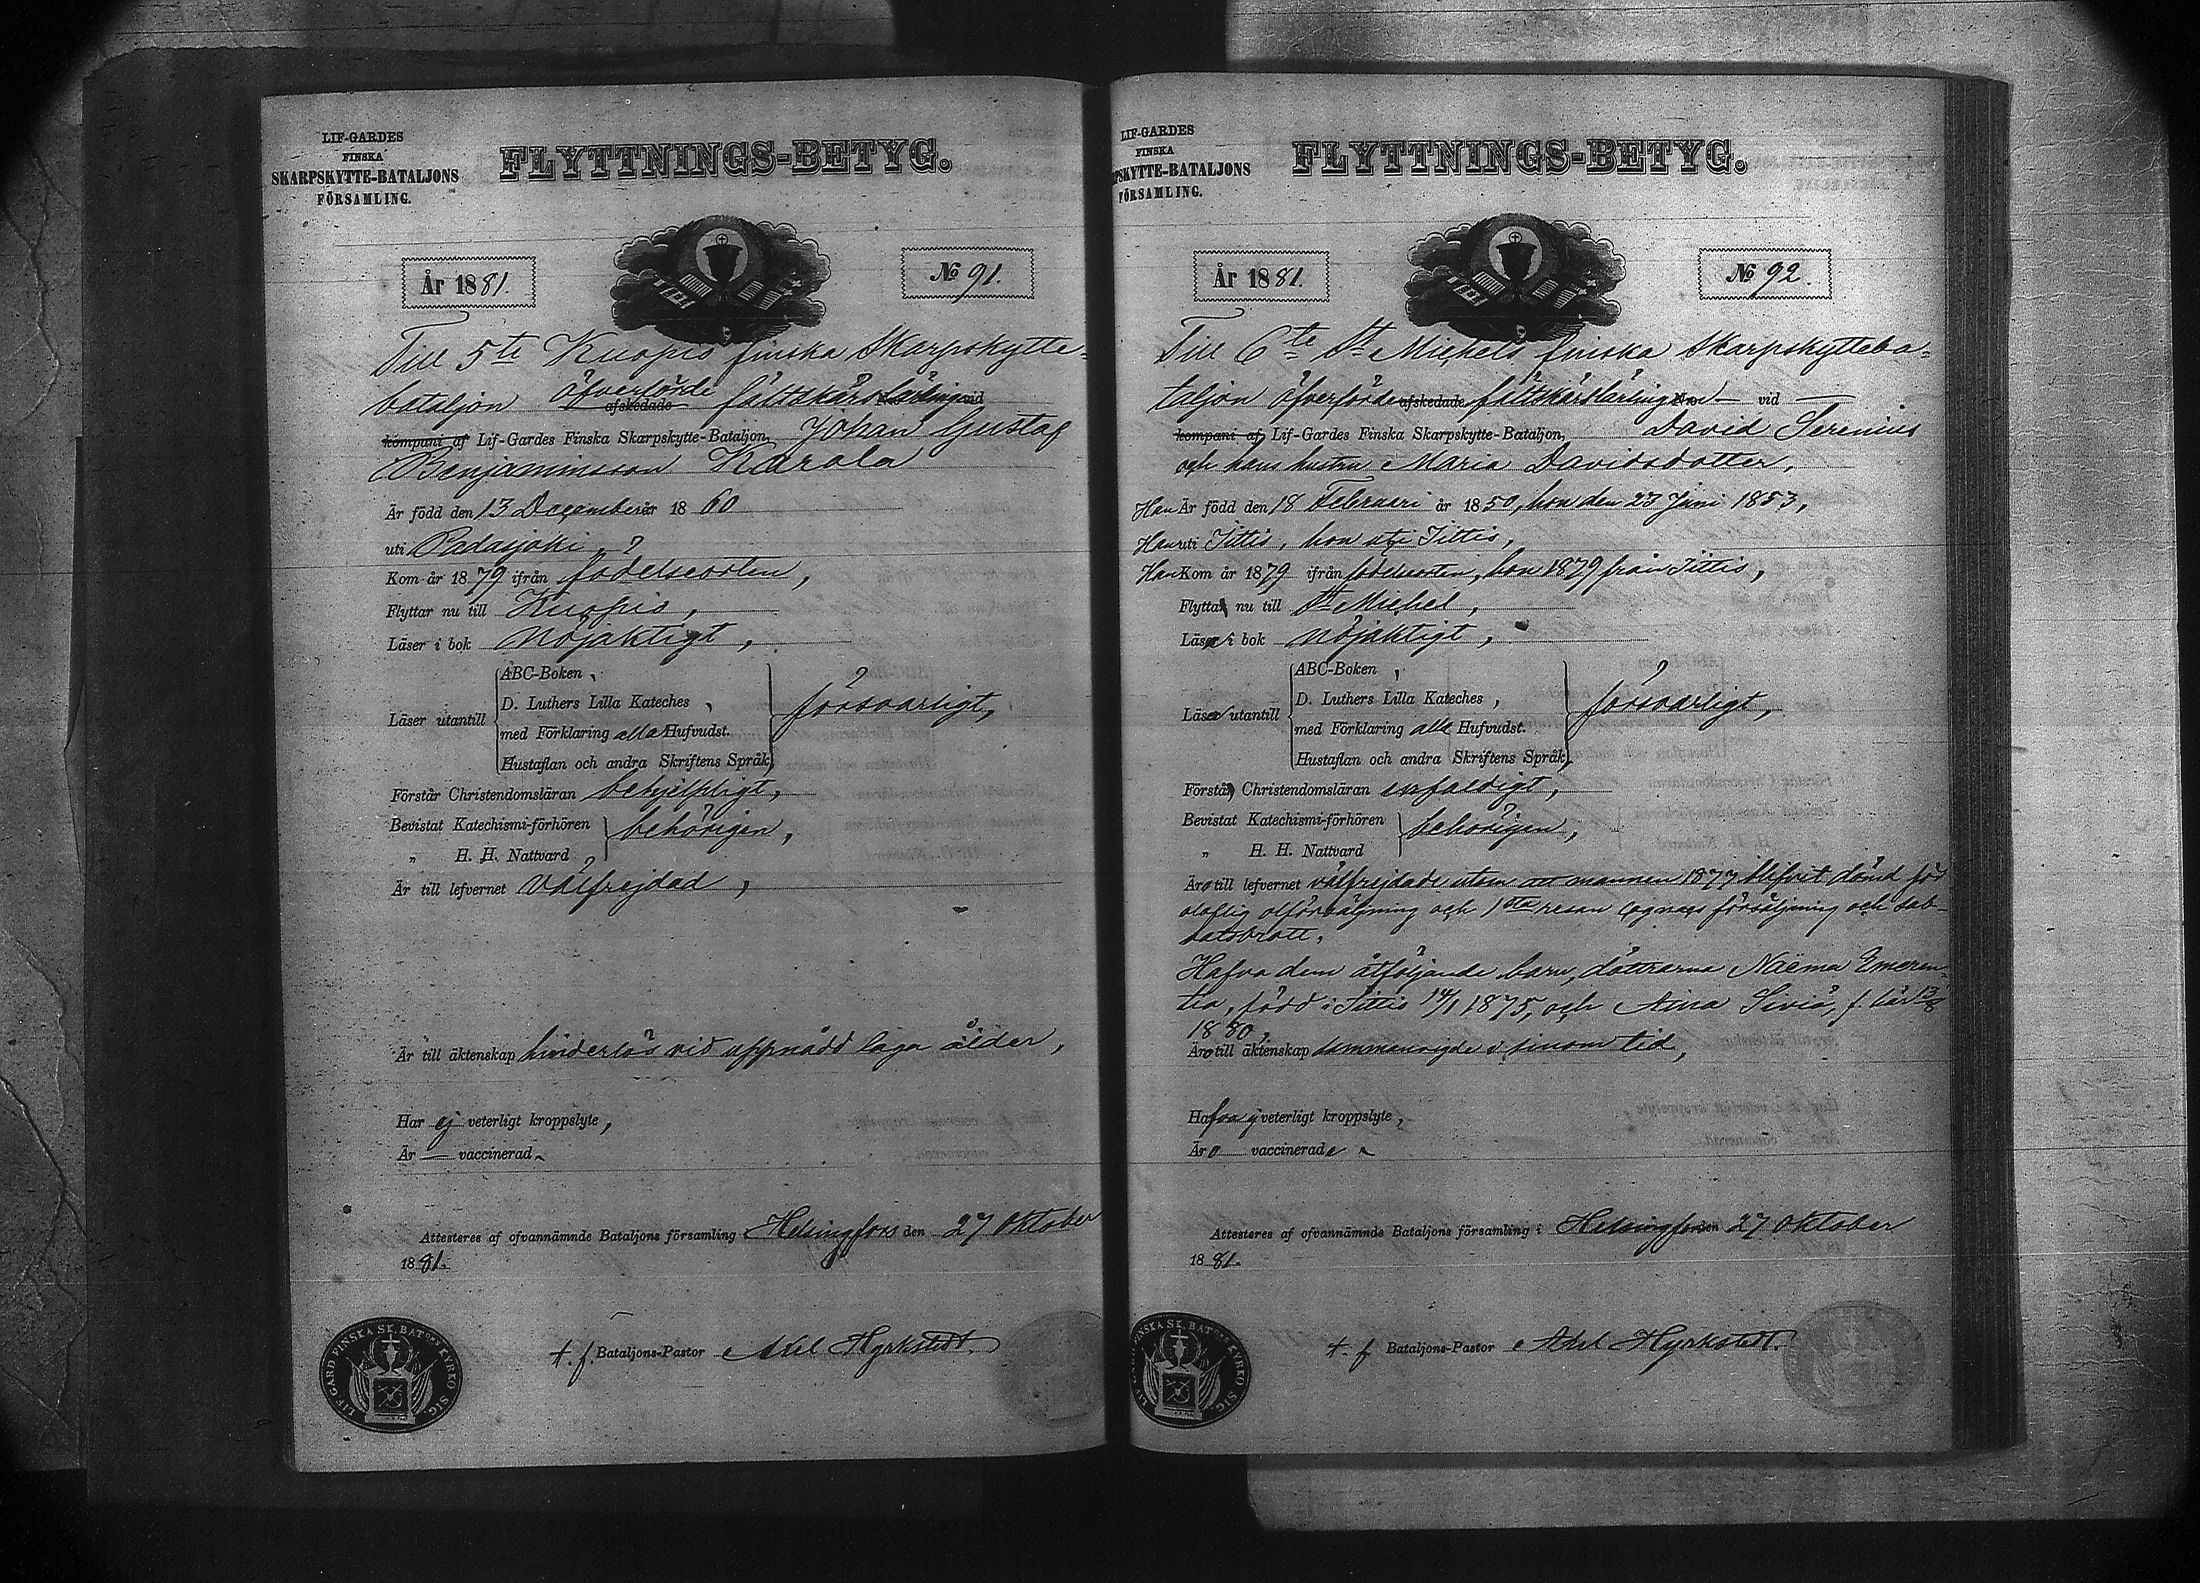 LIF-GARDES
FINSKA
SKARPSKYTTE-BATALJONS
FÖRSAMLING.
FLYTTNINGS-BETYG.
År 1881.
№ 91.
Till 5te Kuopio finska Skarpskytte-
bataljon öfverförde afskedade fältskärslärling vid
kompani af Lif-Gardes Finska Skarpskytte-Bataljon, Johan Gustaf
Benjaminsson Karola
Är född den 13 December år 1860
uti Padasjoki,
Kom år 1879 ifrån födelseorten,
Flyttar nu till Kuopio,
Läser i bok nöjaktigt,
Läser utantill
ABC-Boken,
D. Luthers Lilla Kateches,
med Förklaring alla Hufvudst.
Hustaflan och andra Skriftens Språk
försvarligt,
Förstår Christendomsläran behjelpligt,
Bevistat Katechismi-förhören
„ H. H. Nattvard
behörigen,
Är till lefvernet välfrejdad,
Är till äktenskap hinderlös vid uppnådd laga ålder,
Har ej veterligt kroppslyte,
Är — vaccinerad.
Attesteras af ofvannämnde Bataljons församling Helsingfors den 27 Oktober
1881.
t. f. Bataljons-Pastor Axel Hyrkstedt.
LIF. GARD. FINSKA SK. BAT:ons KYRKO SIG.
LIF-GARDES
FINSKA
RPSKYTTE-BATALJONS
FÖRSAMLING.
FLYTTNINGS-BETYG.
År 1881.
№ 92.
Till 6te St Michels finska Skarpskytteba-
taljon öfverförde afskedade fältskärslärling No — vid —
kompani af Lif-Gardes Finska Skarpskytte-Bataljon, David Serenius
och hans hustru Maria Davidsdotter,
Han Är född den 18 Februari år 1850, hon den 23 Juni 1853,
Han uti Iittis, hon uti Iittis,
Han Kom år 1879 ifrån födelseorten, hon 1879 från Iittis,
Flytta nu till St Michel,
Läsa i bok nöjaktigt,
Läsa utantill
ABC-Boken,
D. Luthers Lilla Kateches,
med Förklaring alla Hufvudst.
Hustaflan och andra Skriftens Språk
försvarligt,
Förstå Christendomsläran enfaldigt,
Bevistat Katechismi-förhören
„ H. H. Nattvard
behörigen,
Äro till lefvernet välfrejdade utom att mannen 1877 blifvit dömd för
olaflig ölförsäljning och 1sta resan cognacs försäljning och sab-
batsbrott.
Hafva dem åtföljande barn, döttrarna Naëma Emeren-
tia, född i Iittis 14/1 1875, och Aina Siviä, f. här 13/8
1880,
Äro till äktenskap sammanvigde i sinom tid,
Hafva ej veterligt kroppslyte,
Äro vaccinerade.
Attesteras af ofvannämnde Bataljons församling i Helsingfors den 27 Oktober
1881.
t. f. Bataljons-Pastor Axel Hyrkstedt.
LIF. GARD. FINSKA SK. BAT:ons KYRKO SIG.